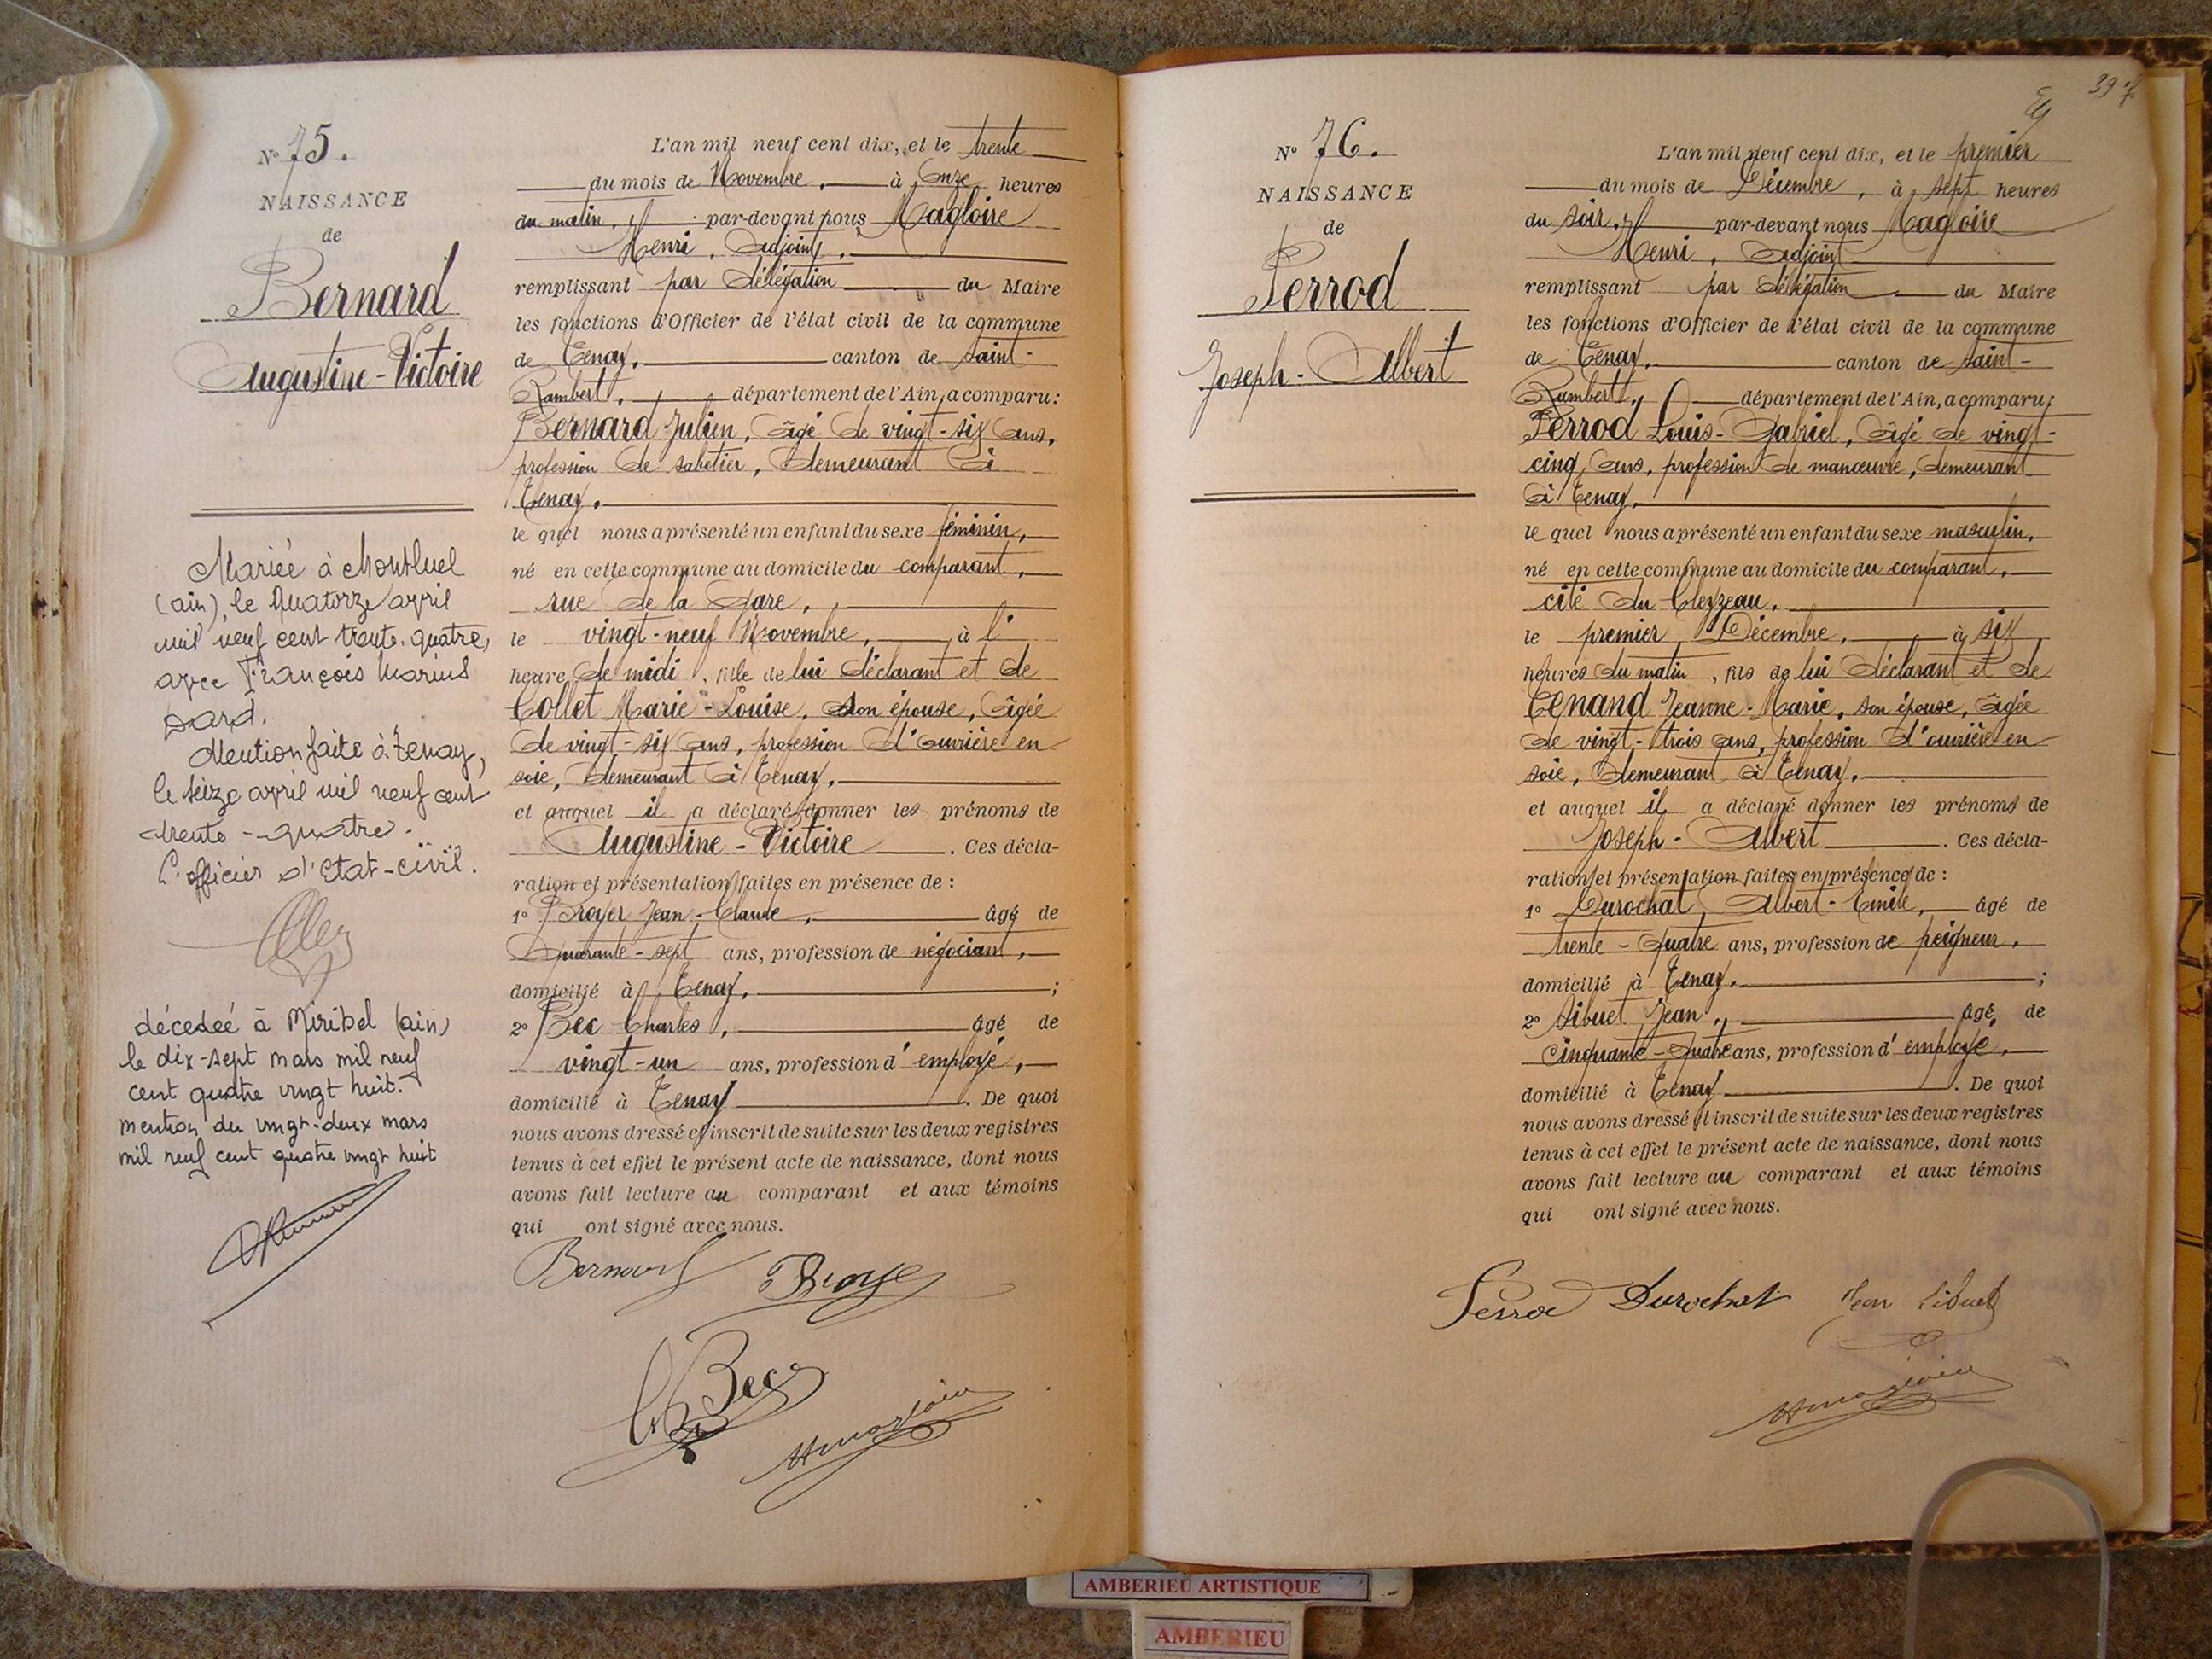 N° 75.
NAISSANCE
de
Bernard
Augustine-Victoire
Mariée à Montluel
(ain), le quatorze avril
mil neuf cent trente-quatre,
avec François Marius
Mention faite à Tenay,
le seize avril mil neuf cent
trente-quatre.
L'officier d'Etat-civil.
décedeé à Miribel (ain)
le dix-sept mars mil neuf
cent quatre vingt huit.
mention du vingt-deux mars
mil neuf cent quatre vingt huit
L'an mil neuf cent dix, et le trente
du mois de Novembre, à onze heures
du matin, par-devant nous Magloire
Henri, adjoint,
remplissant par délégation du Maire
les fonctions d'Officier de l'état civil de la commune
de Tenay, canton de saint-
Rambert, département de l'Ain, a comparu:
Bernard Julien, âgé de vingt-six ans,
profession de sabotier, demeurant à
Tenay,
le quel nous a présenté un enfant du sexe féminin,
né en cette commune au domicile du comparant,
rue de la Gare,
le vingt-neuf Novembre, à l'
heure de midi, fille de lui déclarant et de
Collet Marie-Louise, son épouse, âgée
de vingt-six ans, profession d'ouvrière en
soie, demeurant à Tenay,
et auquel il a déclaré donner les prénoms de
Augustine-Victoire. Ces décla-
ration et présentation faites en présence de:
1° Broyer Jean-Claude, âgé de
Quarante-sept ans, profession de négociant,
domicilié à Tenay, ;
2° Bec Charles, âgé de
vingt-un ans, profession d'employé,
domicilié à Tenay. De quoi
nous avons dressé et inscrit de suite sur les deux registres
tenus à cet effet le présent acte de naissance, dont nous
avons fait lecture au comparant et aux témoins
qui ont signé avec nous.
Bernard Broye
Ch Bec
HMagloire
39
N° 76.
NAISSANCE
de
Perrod
Joseph-Albert
L'an mil neuf cent dix, et le premier
du mois de Décembre, à sept heures
du soir, par-devant nous Magloire
Henri, adjoint
remplissant par délégation du Maire
les fonctions d'Officier de l'état civil de la commune
de Tenay, canton de saint-
Rambert, département de l'Ain, a comparu:
Perrod Louis-Gabriel, âgé de vingt-
cinq ans, profession de manœuvre, demeurant
à Tenay,
le quel nous a présenté un enfant du sexe masculin,
né en cette commune au domicile du comparant,
cité du Cleyzeau,
le premier Décembre, à six
heures du matin, fils de lui déclarant et de
Tenand Jeanne-Marie, son épouse, âgée
de vingt-trois ans, profession d'ouvrière en
soie, demeurant à Tenay,
et auquel il a déclaré donner les prénoms de
Joseph-Albert. Ces décla-
ration et présentation faites en présence de:
1° Durochat Albert-Emile, âgé de
trente-quatre ans, profession de peigneur,
domicilié à Tenay, ;
2° Sibuet Jean, âgé de
Cinquante-quatre ans, profession d'employé,
domicilié à Tenay. De quoi
nous avons dressé et inscrit de suite sur les deux registres
tenus à cet effet le présent acte de naissance, dont nous
avons fait lecture au comparant et aux témoins
qui ont signé avec nous.
Perrod Durochat Jean Sibuet
HMagloire
AMBERIEU ARTISTIQUE
AMBERIEU